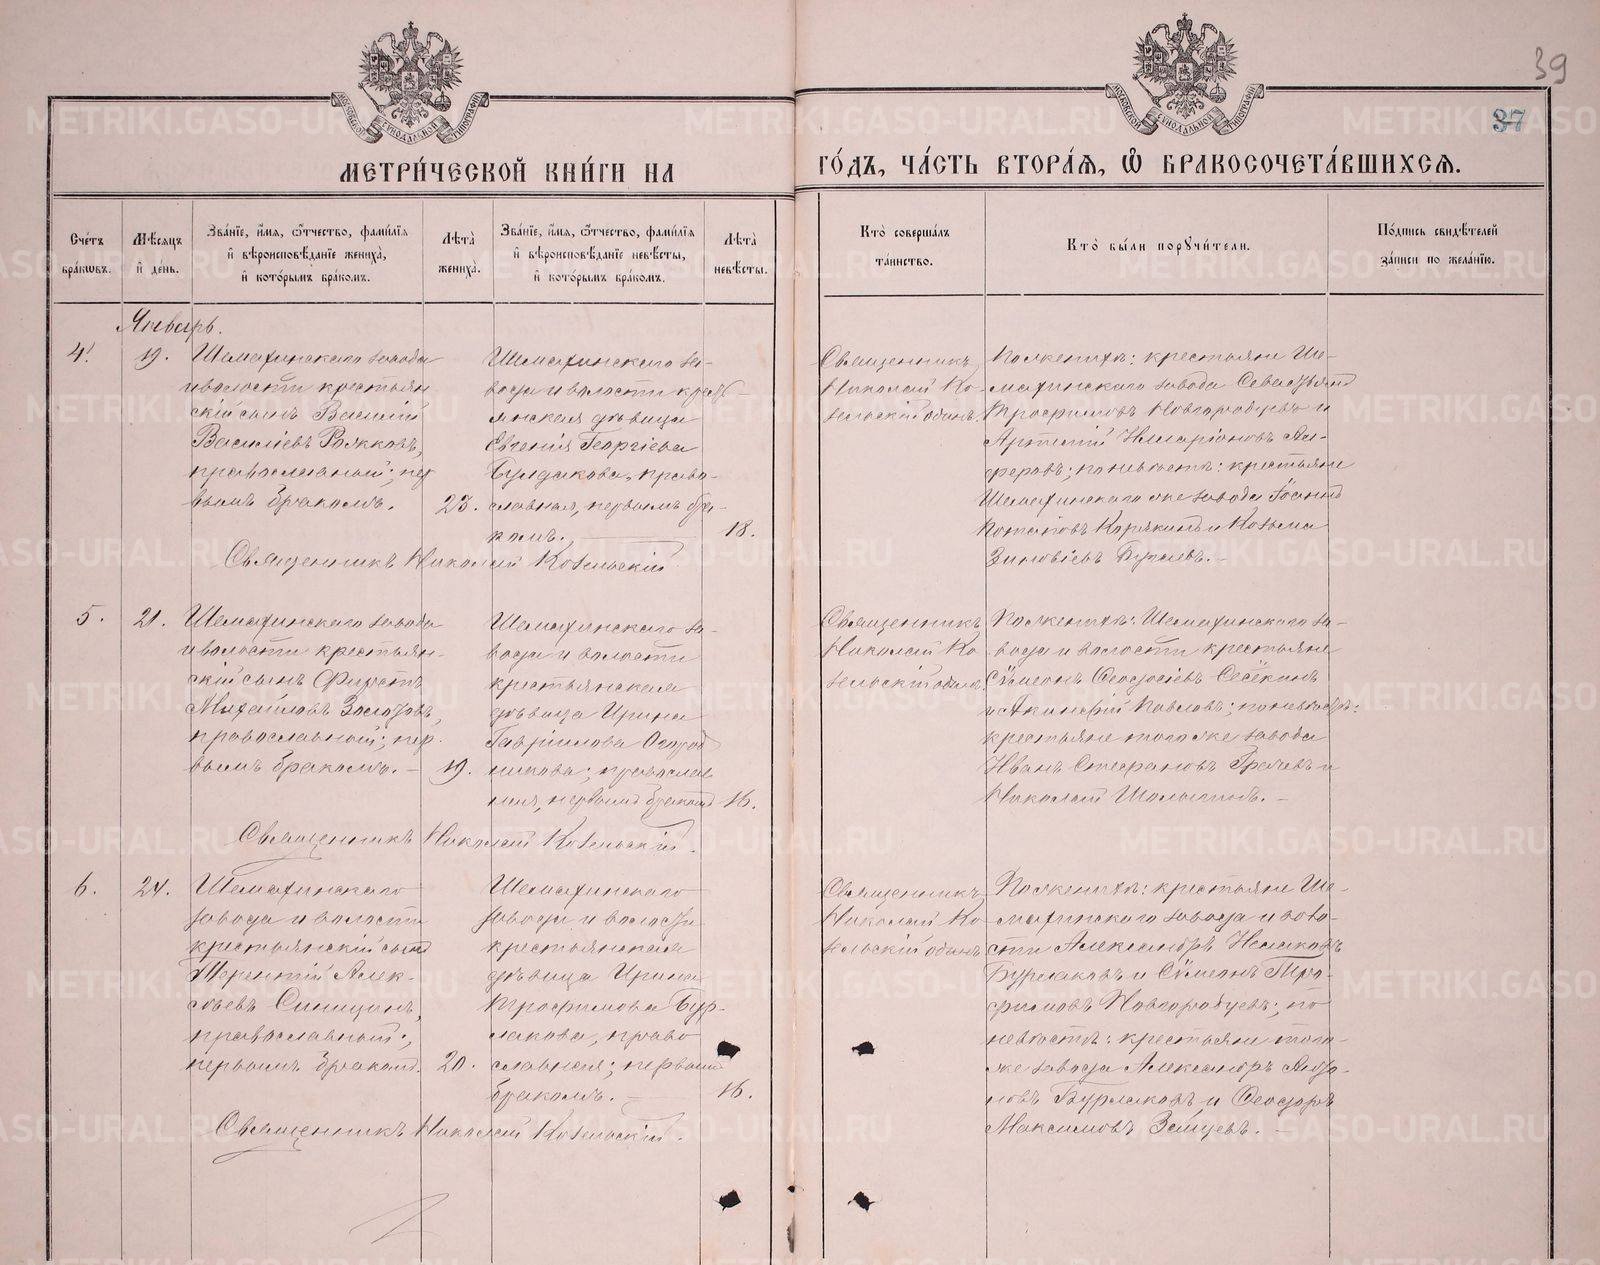 39
37
МЕТРИ́ЧЕСКОЙ КНИ́ГИ НА ГО́ДЪ, ЧА́СТЬ ВТОРА́Ѧ, Ѽ БРАКОСОЧЕТА́ВШИХСѦ.
Сче́тъ бра́кѡвъ.
Мѣ́сѧцъ и҆ де́нь.
Зва́нїе, и҆́мѧ, ѻ҆́тчество, фами́лїѧ и҆ вѣроисповѣ́данїе жениха̀, и҆ кото́рымъ бра́комъ.
Лѣта̀ жениха̀.
Зва́нїе, и҆́мѧ, ѻ҆́тчество, фами́лїѧ и҆ вѣроисповѣ́данїе невѣ́сты, и҆ кото́рымъ бра́комъ.
Лѣта̀ невѣ́сты.
Кто̀ соверша́лъ та́инство.
Кто̀ бы́ли порꙋчи́тели.
По́дпись свидѣ́телей за́писи по жела́нїю.
Январь.
4.
19.
Шемахинскаго завода
и волости крестьян
скій сынъ Василій
Васильевъ Рожковъ,
православный; пер
вымъ бракомъ.
23.
Шемахинскаго за-
вода и волости крест-
янская дѣвица
Евгенія Георгіева
Булдакова, право-
славная, первымъ бра-
комъ.
18.
Священникъ
Николай Ко-
зельскій
По женихѣ: крестьяне Ше-
махинскаго завода Севастьянъ
Трофимовъ Новгородцевъ и
Артемій Иларіоновъ Ал-
феровъ; по невѣстѣ: крестьяне
Шемахинскаго же завода Іоаннъ
Потаповъ Карякинъ и Козьма
Зиновіевъ
Священникъ Николай Козельскій
5.
21.
Шемахинскаго завода
и волости крестьян-
скій сынъ
Михайловъ Золотовъ,
православный; пер-
вымъ бракомъ.
19.
Шемахинскаго за-
вода и волости
крестьянская
дѣвица Ирина
Гавріилова Огород
никова; православ
ная, первымъ бракомъ
16.
Священникъ
Николай Ко
зельскій
По женихѣ: Шемахинскаго за-
вода и волости крестьяне
Сѵмеонъ Ѳеодосіевъ Сесёкинъ
и Павловъ; по невѣстѣ:
крестьяне того же завода
Иванъ Стефановъ Грачевъ и
Николай
Священникъ Николай Козельскій.
6.
24.
Шемахинскаго
завода и волости
крестьянскій сынъ
Терентій Алек-
сѣевъ Синицынъ,
православный;
первымъ бракомъ.
20.
Шемахинскаго
завода и волости
крестьянская
дѣвица Ирина
Трофимова Бур-
лакова, право
славная; первымъ
бракомъ.
16.
Священникъ
Николай Ко
зельскій
По женихѣ: крестьяне Ше-
махинскаго завода и воло-
сти Александръ Исаковъ
Бурлаковъ и Сѵмеонъ Тро-
фимовъ Новгородцевъ; по
невѣстѣ: крестьяне того
же завода Александръ
Бурлаковъ и Ѳеодоръ
Максимовъ Зайцевъ.
Священникъ Николай Козельскій.
METRIKI.GASO-URAL.RU